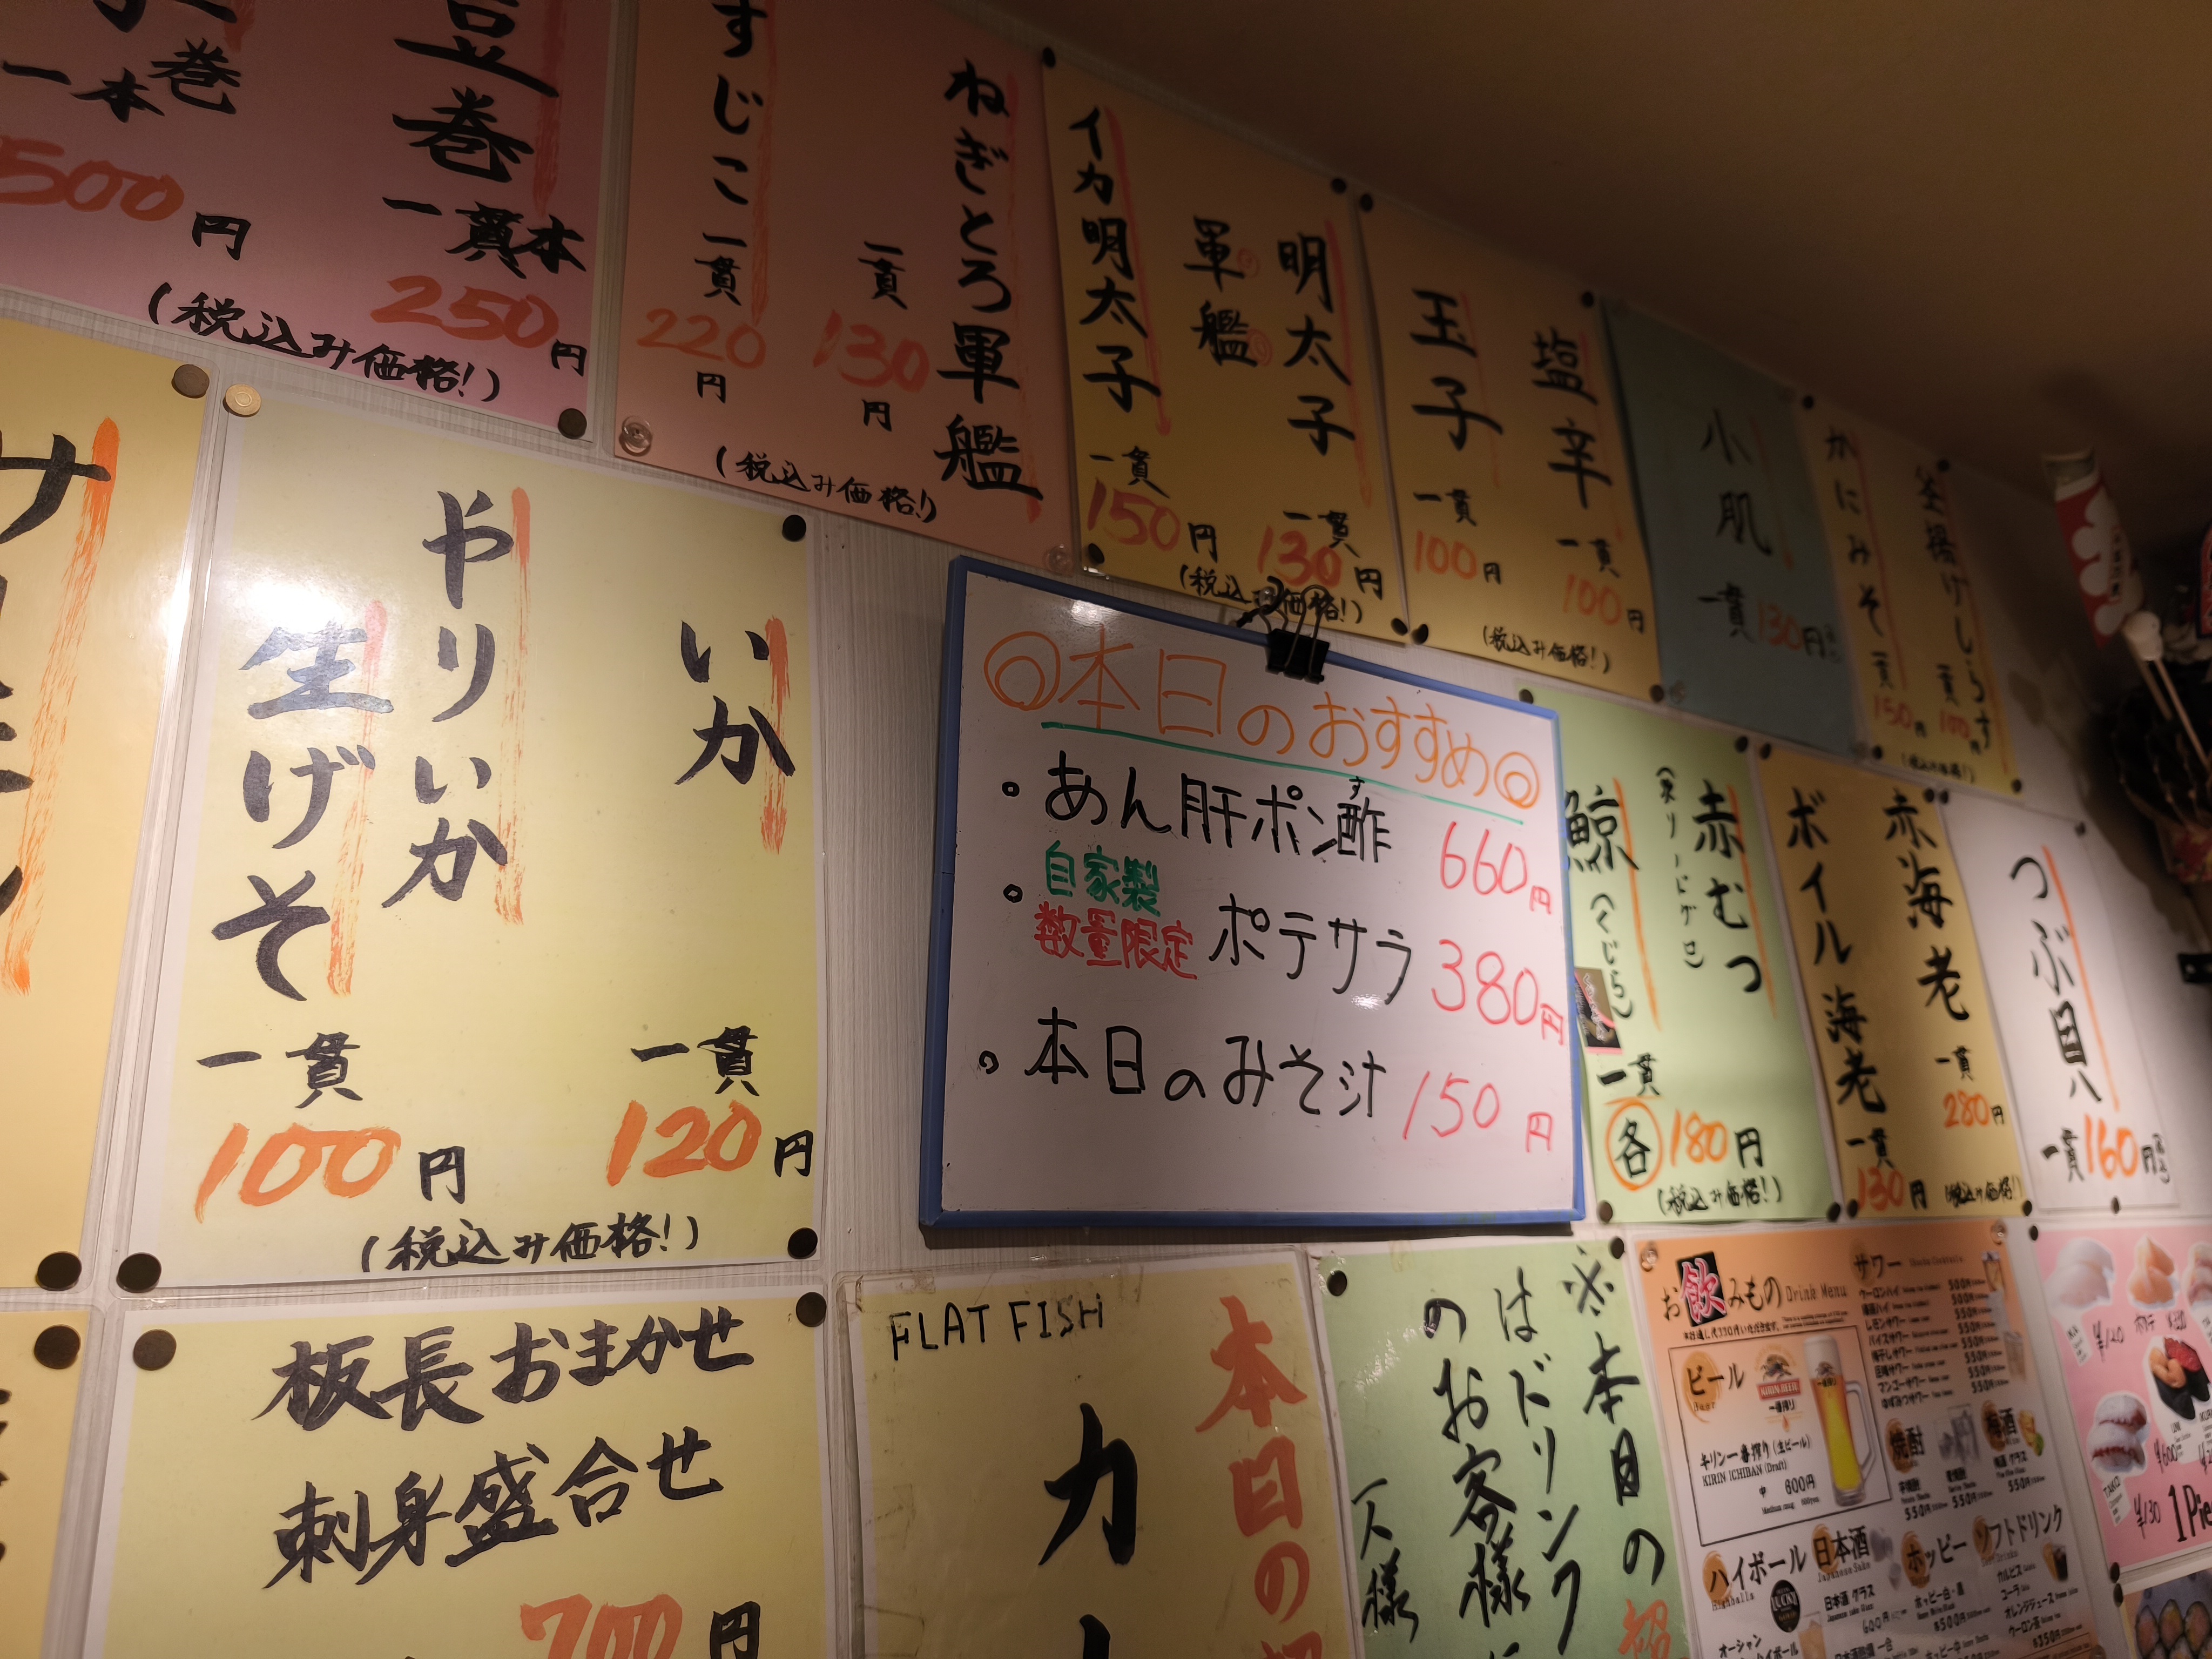 巻
一本
500円
豆巻
一貫本
250円
(税込み価格!)
すじこ
一貫
220円
ねぎとろ軍艦
一貫
130円
(税込み価格!)
イカ明太子
一貫
150円
明太子
軍艦
一貫
130円
(税込み価格!)
玉子
一貫
100円
塩辛
一貫
100円
(税込み価格!)
小肌
一貫
130円
かにみそ
一貫
150円
釜揚げしらす
一貫
100円
いか
一貫
120円
やりいか
生げそ
一貫
100円
(税込み価格!)
◎本日のおすすめ◎
・あん肝ポン酢 660円
す
・自家製
数量限定 ポテサラ 380円
・本日のみそ汁 150円
赤むつ
鯨
(くじら)
一貫
各180円
(税込み価格!)
赤海老
一貫
280円
ボイル海老
一貫
130円
(税込み価格!)
つぶ貝
一貫
160円
板長おまかせ
刺身盛合せ
700円
FLAT FISH
本日の
カ
※本日の
はドリンク
のお客様
一人様
お飲みもの Drink Menu
ビール
Beer
KIRIN BEER
一番搾り
キリン一番搾り(生ビール)
KIRIN ICHIBAN (Draft)
中 600円
サワー
ウーロンハイ
レモンサワー
焼酎
梅酒
ハイボール
Highballs
日本酒
ホッピー
ソフトドリンク
カルピス
コーラ
オレンジジュース
ウーロン茶
日本酒 グラス
600円
オーシャン
¥120
¥600
¥130
1 Pie